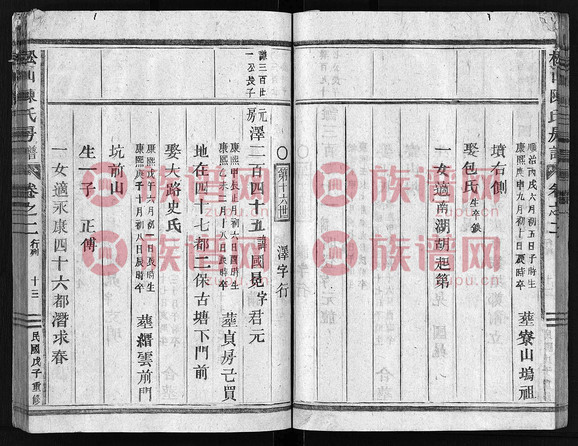 順治丙戌六月初五日子時生
康熙庚申九月初十日辰時卒
葬寮山塢祖
墳右側
娶包氏
生卒缺
一女適南湖胡起第
第十六世
澤字行
三百世
一公長子
元房
澤二百四十五
諱國晃字君元
康熙甲辰正月初六日
康熙乙亥三月十六日辰時卒
葬貞房亡買
地在四十七都二保古塘下門前
娶大路史氏
康熙戊午六月初一日辰時生
康熙庚子十月初八日辰時卒
葬縉雲前門
坑前山
生一子
正傅
一女適永康四十六都潛求春
松山陳氏房譜
卷之二
行
十三
民國戊子重修
族谱网
zupu.cn